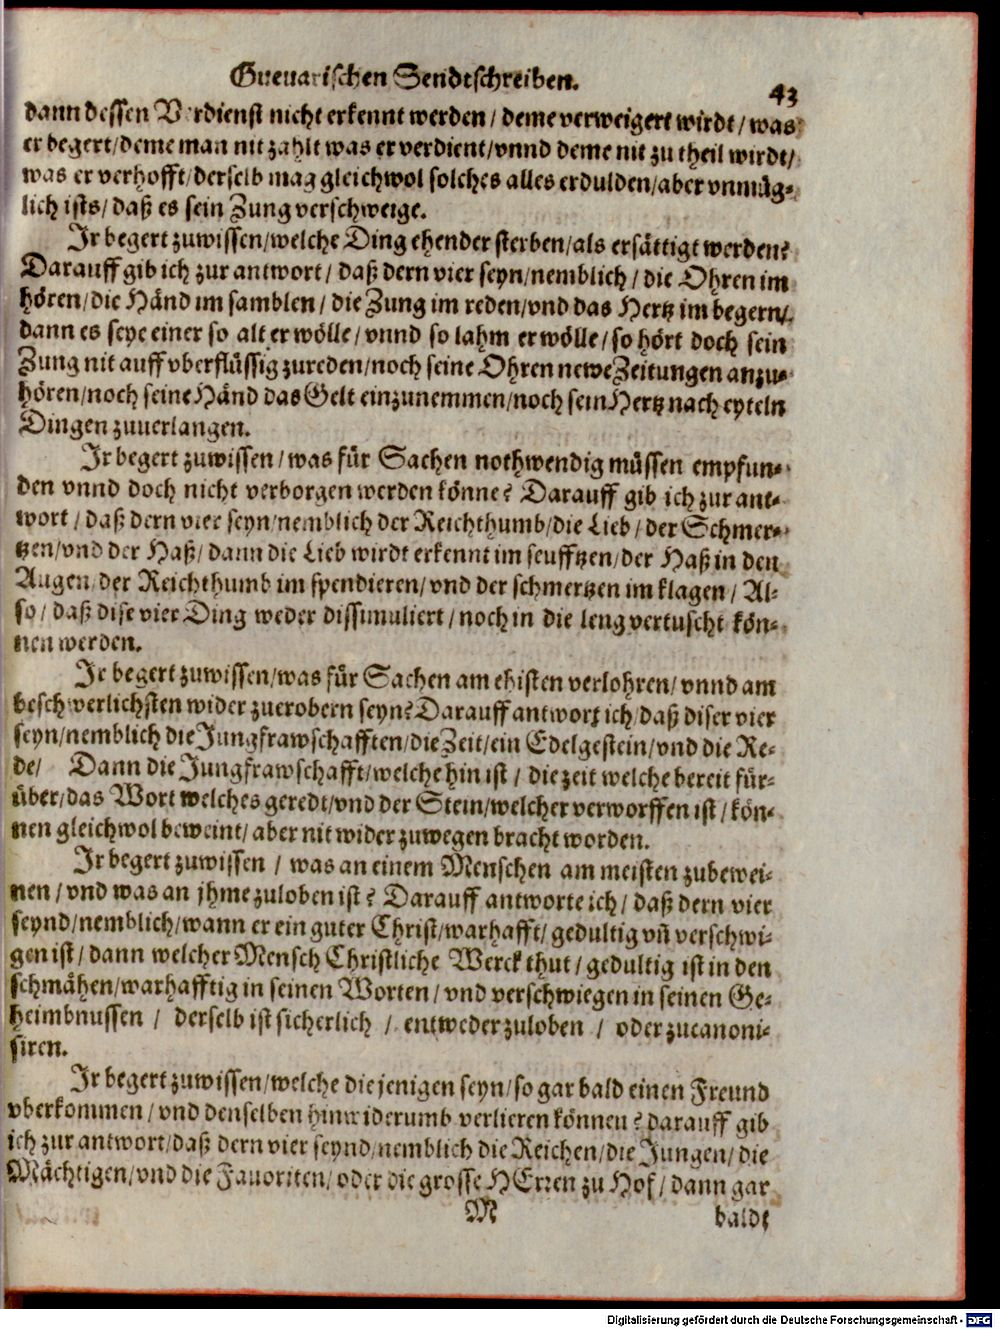 Guevarischen Sendtschreiben.
43
dann dessen Verdienst nicht erkennt werden / deme verweigert wirdt / was
er begert / deme man nit zahlt was er verdient / vnnd deme nit zu theil wirdt /
was er verhofft / derselb mag gleichwol solches alles erdulden / aber vnmüg-
lich ists / daß es sein Zung verschweige.
Ir begert zuwissen / welche Ding ehender sterben / als ersättigt werden?
Darauff gib ich zur antwort / daß dern vier seyn / nemblich / die Ohren im
hören / die Händ im samblen / die Zung im reden / vnd das Hertz im begern /
dann es seye einer so alt er wölle / vnnd so lahm er wölle / so hört doch sein
Zung nit auff vberflüssig zureden / noch seine Ohren newe Zeitungen anzu-
hören / noch seine Händ das Gelt einzunemmen / noch sein Hertz nach eyteln
Dingen zuuerlangen.
Ir begert zuwissen / was für Sachen nothwendig müssen empfun-
den vnnd doch nicht verborgen werden könne? Darauff gib ich zur ant-
wort / daß dern vier seyn / nemblich der Reichthumb / die Lieb / der Schmer-
tzen / vnd der Haß / dann die Lieb wirdt erkennt im seufftzen / der Haß in den
Augen / der Reichthumb im spendieren / vnd der schmertzen im klagen / Al-
so / daß dise vier Ding weder dissimuliert / noch in die leng vertuscht kön-
nen werden.
Ir begert zuwissen / was für Sachen am ehisten verlohren / vnnd am
beschwerlichsten wider zuerobern seyn? Darauff antwort ich / daß diser vier
seyn / nemblich die Jungfrawschafften / die Zeit / ein Edelgestein / vnd die Re-
de / Dann die Jungfrawschafft / welche hin ist / die zeit welche bereit für-
über / das Wort welches geredt / vnd der Stein / welcher verworffen ist / kön-
nen gleichwol beweint / aber nit wider zuwegen bracht worden.
Ir begert zuwissen / was an einem Menschen am meisten zubewei-
nen / vnd was an jhme zuloben ist? Darauff antworte ich / daß dern vier
seynd / nemblich / wann er ein guter Christ / warhafft / gedultig vñ verschwi-
gen ist / dann welcher Mensch Christliche Werck thut / gedultig ist in den
schmähen / warhafftig in seinen Worten / vnd verschwiegen in seinen Ge-
heimbnussen / derselb ist sicherlich / entweder zuloben / oder zucanoni-
siren.
Ir begert zuwissen / welche die jenigen seyn / so gar bald einen Freund
vberkommen / vnd denselben hinwiderumb verlieren können? darauff gib
ich zur antwort / daß dern vier seynd / nemblich die Reichen / die Jungen / die
Mächtigen / vnd die Fauoriten / oder die grosse HErren zu Hof / dann gar
M
baldt
Digitalisierung gefördert durch die Deutsche Forschungsgemeinschaft - DFG